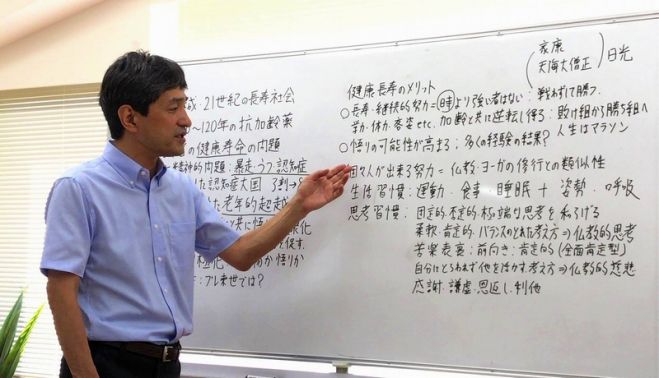 成:21世紀の長寿社会
~120年の抗加齢薬
の健康寿命の問題
精神的問題:暴走・うつ・認知症
た認知症大国
た老年的超越
共に悟
を促す
悟りか
:プレ来世では?
家康
天海大僧正
日光
健康長寿のメリット
○長寿・継続的努力=時より強い者はない:戦わずして勝つ
学力・体力・容姿etc.加齢と共に逆転し得る:敗け組から勝ち組へ
○悟りの可能性が高まる:多くの経験の結果?人生はマラソン
個々人が出来る努力=仏教・ヨーガの修行との類似性
生活習慣:運動・食事・睡眠+姿勢・呼吸
思考習慣:固定的・否定的・極端な思考を和らげる
柔軟・肯定的・バランスのとれた考え方⇒仏教的思考
苦楽表裏:前向き・肯定的(全面肯定型)
自分にとらわれず他を活かす考え方⇒仏教的慈悲
感謝・謙虚・恩返し・利他